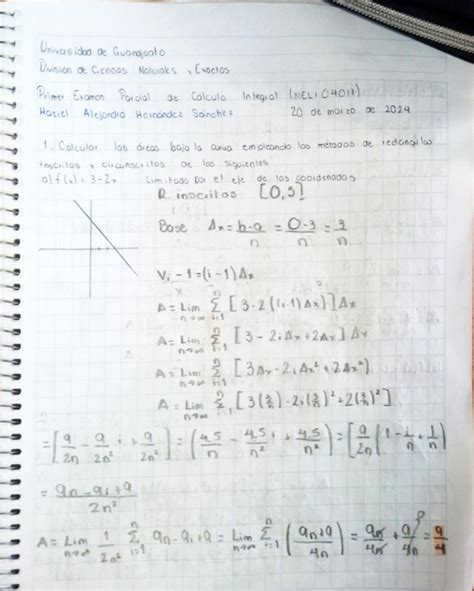 Universidad de Guanajuato
División de Ciencias Naturales y Exactas
Primer Examen Parcial de Cálculo Integral (NELI04011)
Haziel Alejandro Hernández Sánchez 20 de marzo de 2024
1. Calcular las áreas bajo la curva empleando los métodos de rectángulos
inscritos y circunscritos de los siguientes
a) f(x) = 3 - 2x Limitado por el eje de las coordenadas
R. inscritos [0,3]
Base Δx = b-a/n = 0-3/n = 3/n
V_i - 1 = (i-1)Δx
A = Lim n→∞ Σ i=1 n [3 - 2((i-1)Δx)]Δx
A = Lim n→∞ Σ i=1 n [3 - 2iΔx + 2Δx]Δx
A = Lim n→∞ Σ i=1 n [3Δx - 2iΔx² + 2Δx²)
A = Lim n→∞ Σ i=1 n [3(3/n) - 2i(3/n)² + 2(3/n)²]
= [9/2n - 9/2n² i + 9/2n²] = (4.5/n - 4.5i/n² + 4.5/n²) = [9/2n (1 - i/n + 1/n)
= 9n - 9i + 9/2n²
A = Lim n→∞ 1/2n² Σ i=1 n 9n - 9i + 9 = Lim n→∞ Σ i=1 n (9n+9/4n) = 9n/4n + 9/4n = 9/4